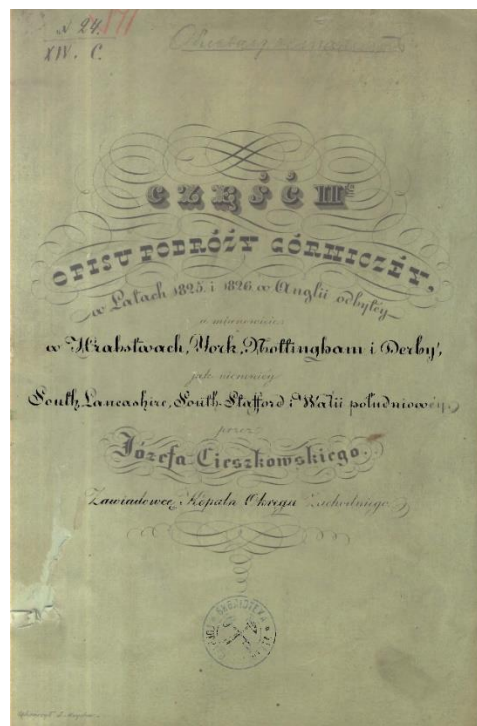 N 24.
XIV. C.
CZĘŚĆ II
OPISU PODRÓŻY GÓRNICZÉY,
w Latach 1825. i 1826. w Anglii odbytéy
a mianowicie
w Hrabstwach, York, Nottingham i Derby,
jak niemniéy
South, Lancashire, South-Stafford i Walii południowéy
przez
Józefa Cieszkowskiego.
Zawiadowcę Kopalń Okręgu Zachodniego
BIBLIOTEKA